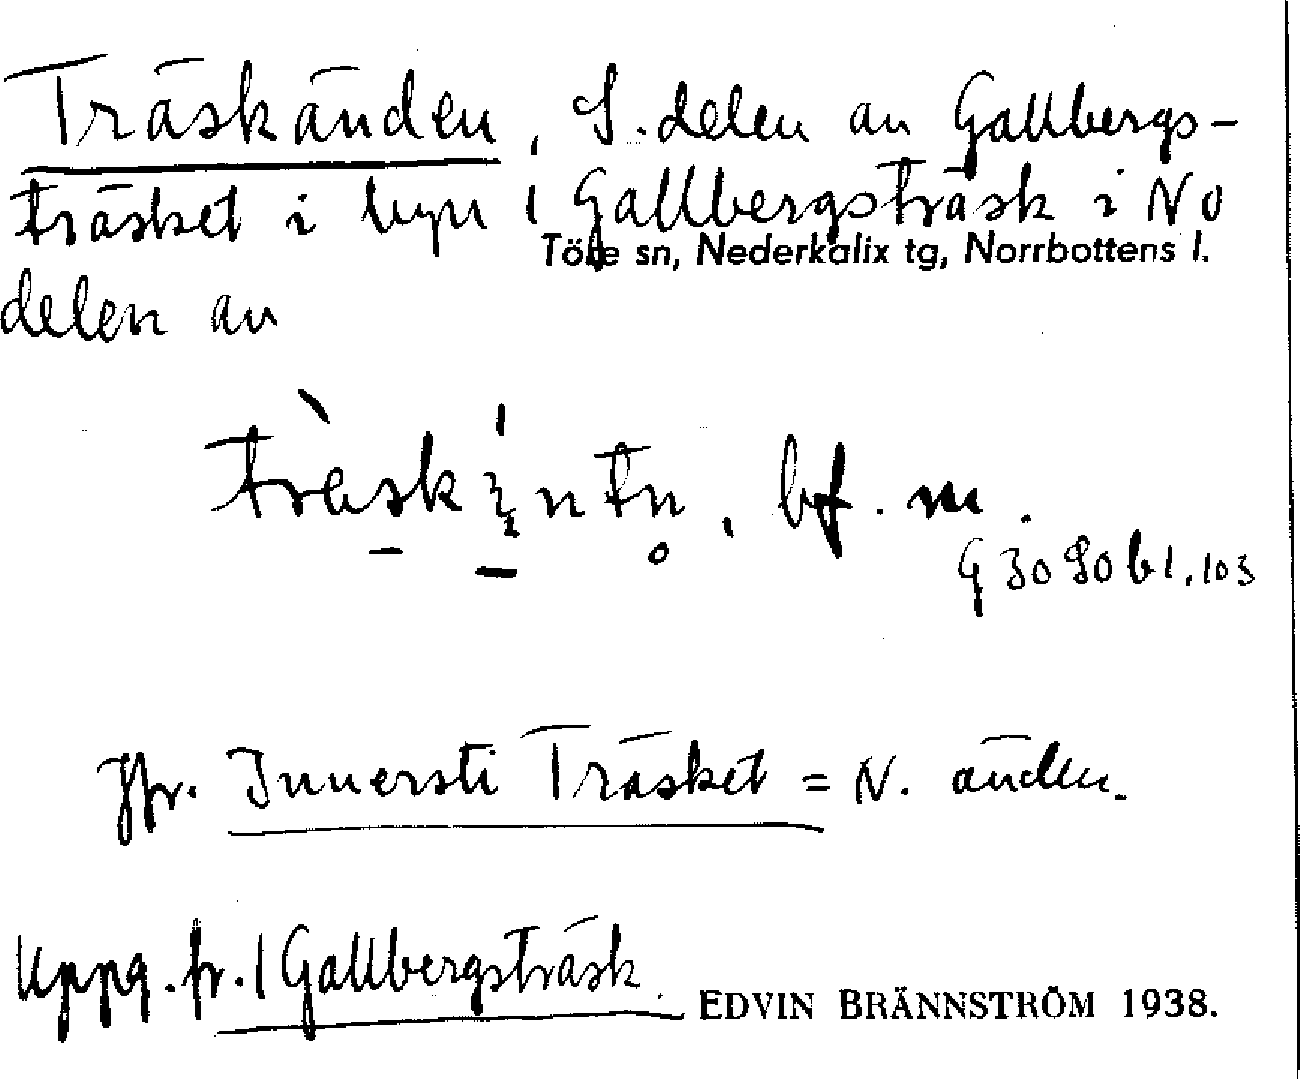 Träskänden, S. delen av Gallbergs-
träsket i byn 1 Gallbergsträsk i NO
Töre sn, Nederkalix tg, Norrbottens l.
delen av
bf. m.
G 30 SO b1, 103
Jfr. Innersti Träsket = N. änden.
Uppg. fr. 1 Gallbergsträsk. EDVIN BRÄNNSTRÖM 1938.